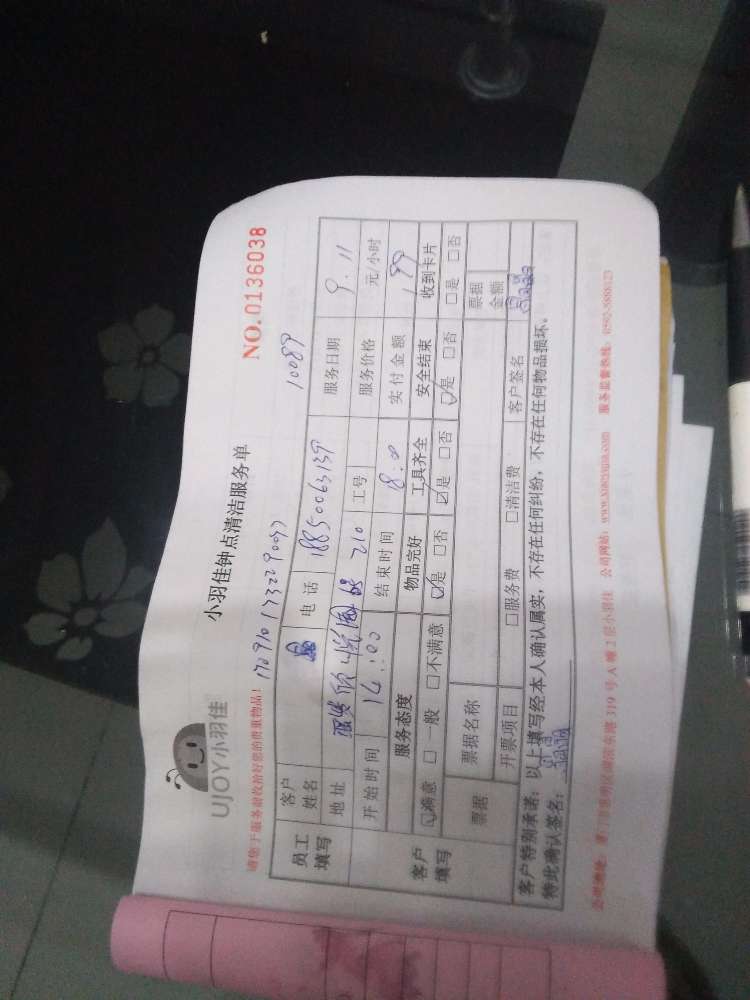 UJOY小羽佳
小羽佳钟点清洁服务单
NO.0136038
请您于服务前收拾好您的贵重物品!
10089
员工填写
客户姓名
电话 18850063139
服务日期 9.11
地址 210
工号
服务价格 元/小时
客户填写
开始时间 14:00
结束时间 18:00
实付金额 199
服务态度 物品完好 工具齐全 安全结束 收到卡片
☑满意 □一般 □不满意 ☑是 □否 ☑是 □否 ☑是 □否 □是 □否
票据 票据名称 票据金额
开票项目 □服务费 □清洁费 客户签名
客户特别承诺:以上填写经本人确认属实,不存在任何纠纷,不存在任何物品损坏。
特此确认签名:
319号A幢2层小羽佳 公司网站: 服务监督热线:0592-5888123